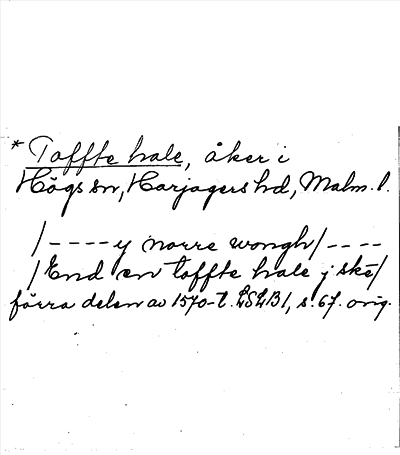 * Toffte hale, åker i
Högs sn, Harjagers hd, Malm. l.
/----y norre wongh/----
/End en toffte hale j skē/
förra delen av 1570-t. LSLB1, s. 67. orig.